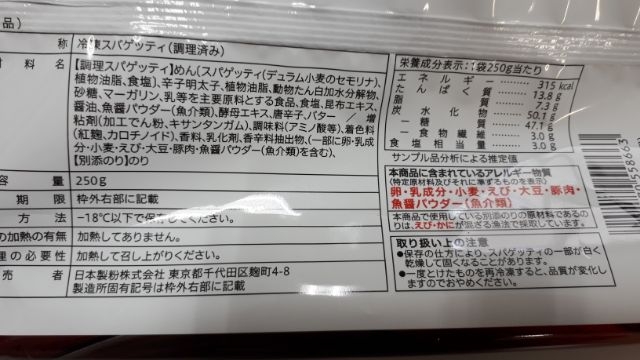 品）
称 冷凍スパゲッティ(調理済み)
材料名 【調理スパゲッティ】めん〔スパゲッティ(デュラム小麦のセモリナ)、
植物油脂、食塩〕、辛子明太子、植物油脂、動物たん白加水分解物、
砂糖、マーガリン、乳等を主要原料とする食品、食塩、昆布エキス、
醤油、魚醤パウダー(魚介類)、酵母エキス、唐辛子、バター／増
粘剤(加工でん粉、キサンタンガム)、調味料(アミノ酸等)、着色料
(紅麹、カロチノイド)、香料、乳化剤、香辛料抽出物、(一部に卵・乳成
分・小麦・えび・大豆・豚肉・魚醤パウダー(魚介類)を含む)、
【別添のり】のり
容量 250g
期限 枠外右部に記載
方法 −18℃以下で保存してください。
の加熱の有無 加熱してありません。
理の必要性 加熱して召し上がりください。
売者 日本製粉株式会社 東京都千代田区麹町4-8
製造所固有記号は枠外右部に記載
栄養成分表示：1袋250g当たり
エネルギー………… 315 kcal
たんぱく質………… 13.8 g
脂質………… 7.3 g
炭水化物………… 50.1 g
－糖質………… 47.1 g
－食物繊維………… 3.0 g
食塩相当量………… 3.0 g
サンプル品分析による推定値
本商品に含まれているアレルギー物質
(特定原材料及びそれに準ずるものを表示)
卵・乳成分・小麦・えび・大豆・豚肉・
魚醤パウダー(魚介類)
本商品で使用している別添のりの原材料であるの
りは、えび・かにが混ざる漁法で採取しています。
取り扱い上の注意
●保存の仕方により、スパゲッティの一部が白く
乾燥して固くなることがあります。
●一度とけたものを再冷凍すると、品質が変化し
ますのでおやめください。